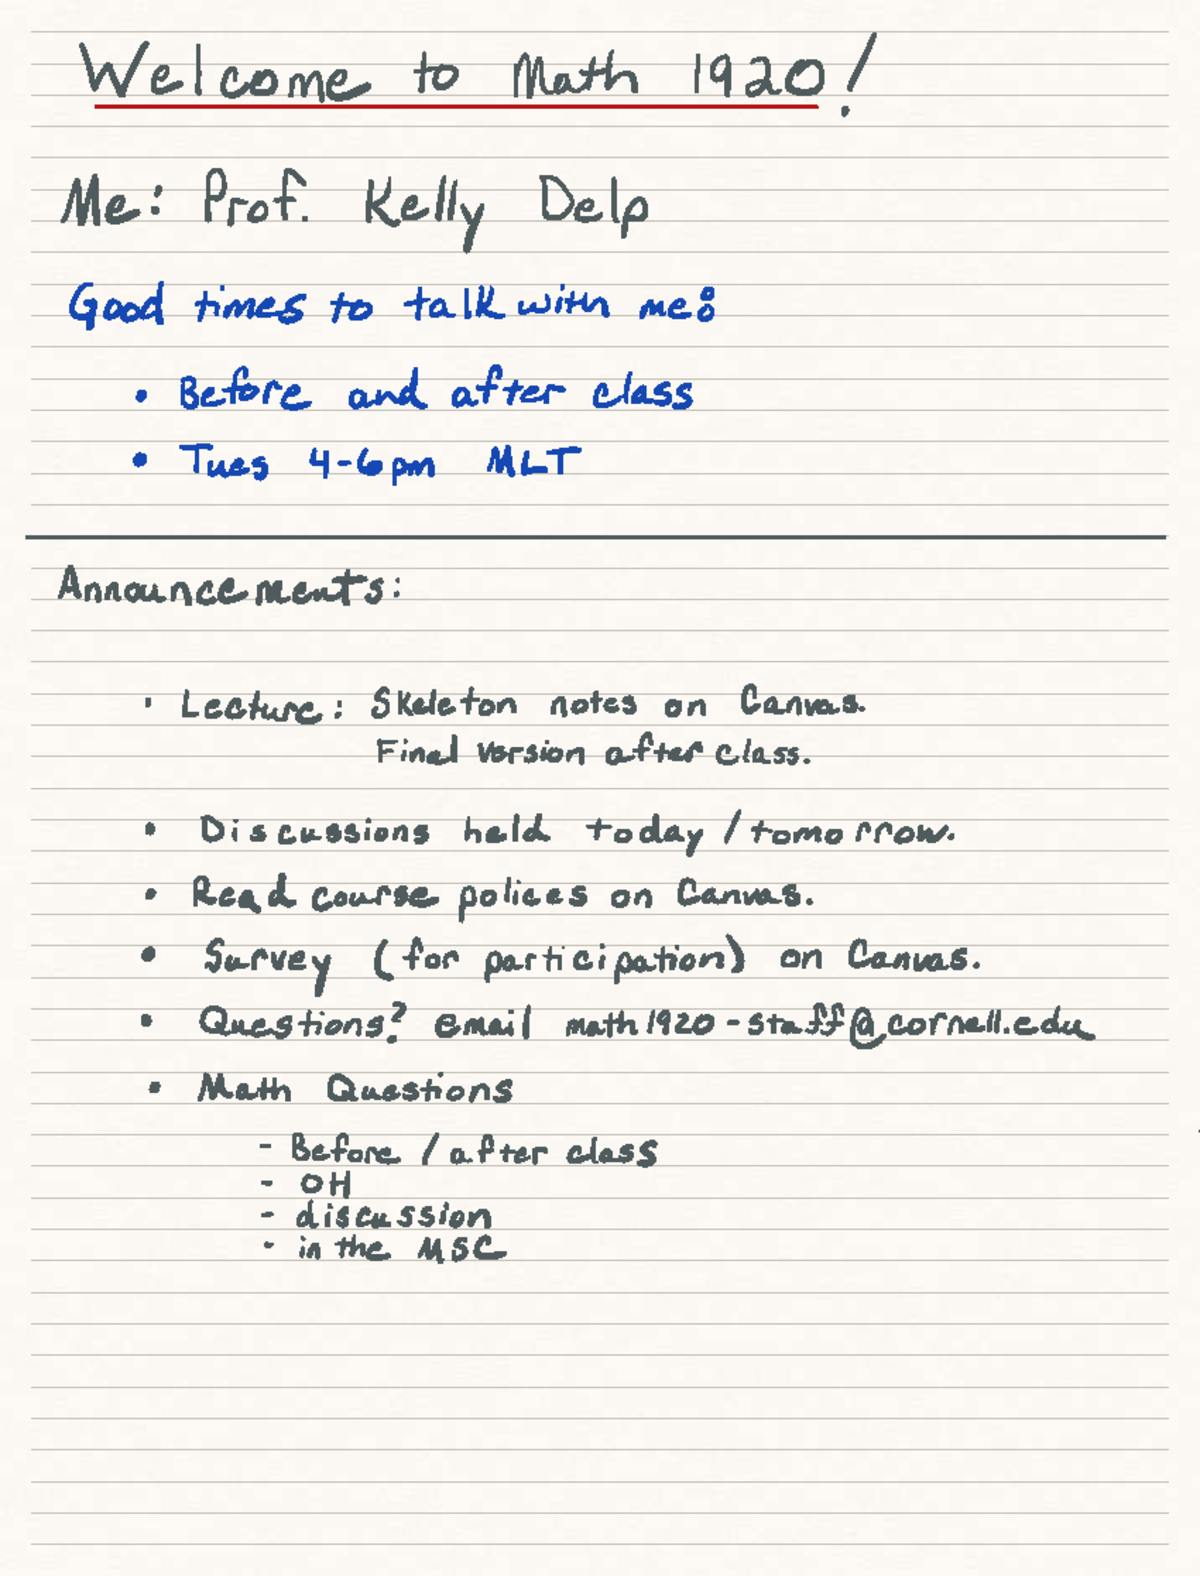 Welcome to Math 1920!
Me: Prof. Kelly Delp
Good times to talk with me:
• Before and after class
• Tues 4-6pm MLT
Announcements:
• Lecture: Skeleton notes on Canvas.
Final version after class.
• Discussions held today / tomorrow.
• Read course polices on Canvas.
• Survey (for participation) on Canvas.
• Questions? email math1920-staff@cornell.edu
• Math Questions
- Before / after class
- OH
- discussion
- in the MSC